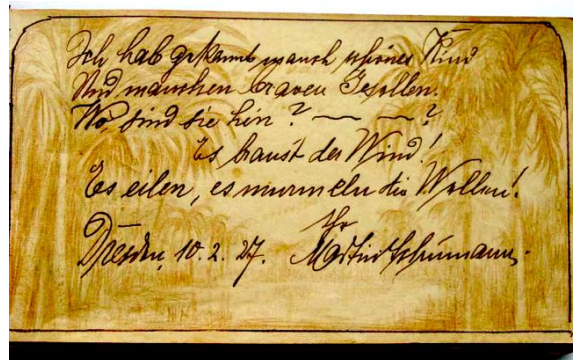 Ich hab gekannt manch schönes Kind
Und manchen braven Gesellen.
Wo sind sie hin? — — ?
Es braust der Wind!
Es eilen, es murmeln die Wellen!
Ihr
Dresden, 10. 2. 27. Martin Schumann.